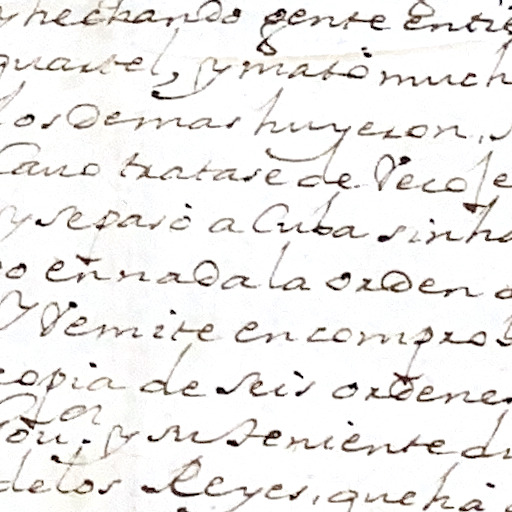 y hechando gente en tie
quartel, y mató much
los demas huyeron, s
Cavo tratase de Recoje
y se pasó a Cuba sin ha
to en nada la orden
Y Remite en comprob
copia de seis ordene
Gov.or y su Teniente d
de los Reyes, que há